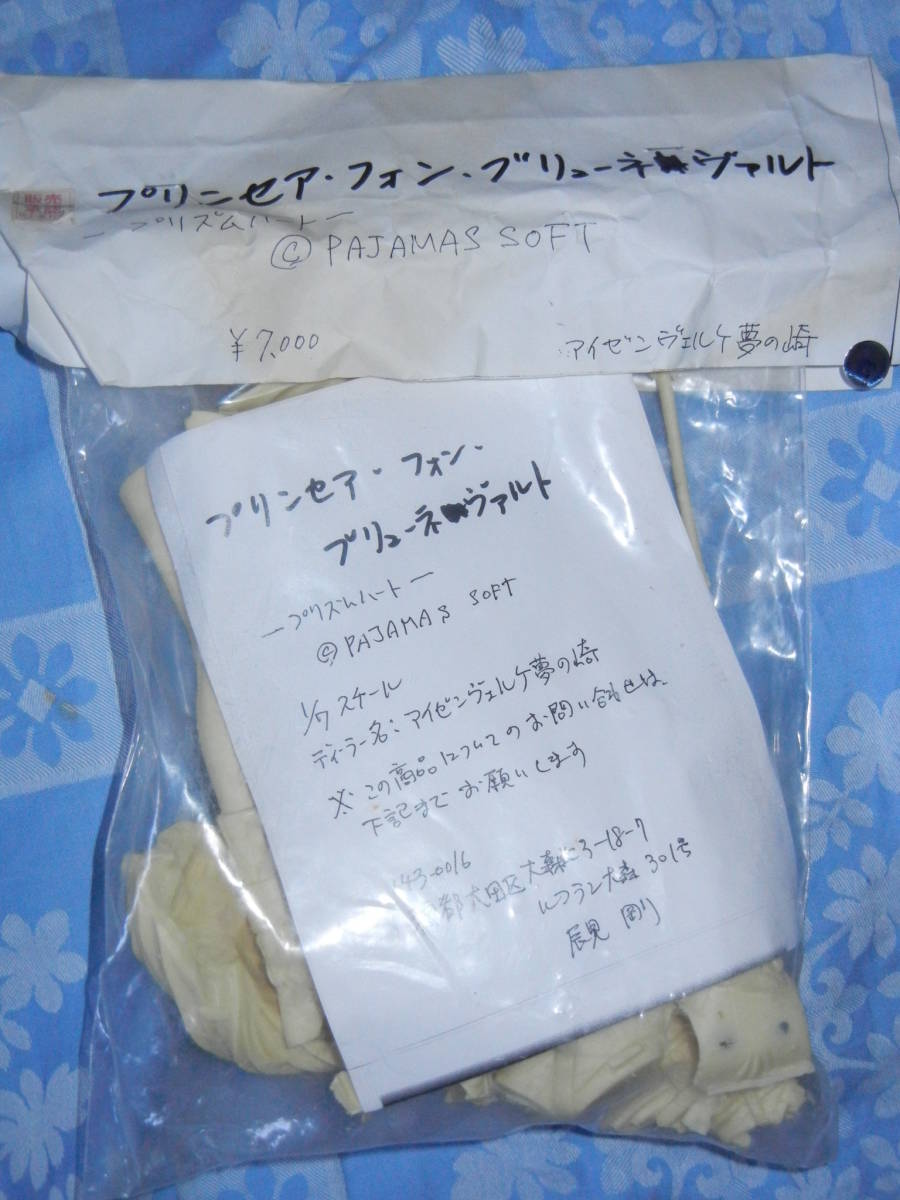 プリンセア・フォン・ブリューネヴァルト
販売
ープリズムハートー
© PAJAMAS SOFT
¥7,000
アイゼンヴェルケ夢の崎
プリンセア・フォン・
ブリューネヴァルト
ープリズムハートー
© PAJAMAS SOFT
1/7スケール
ディーラー名:アイゼンヴェルケ夢の崎
※この商品についてのお問い合わせは、
下記までお願いします
143-0016
都大田区大森北3-18-7
ルフラン大森301号
辰見 剛